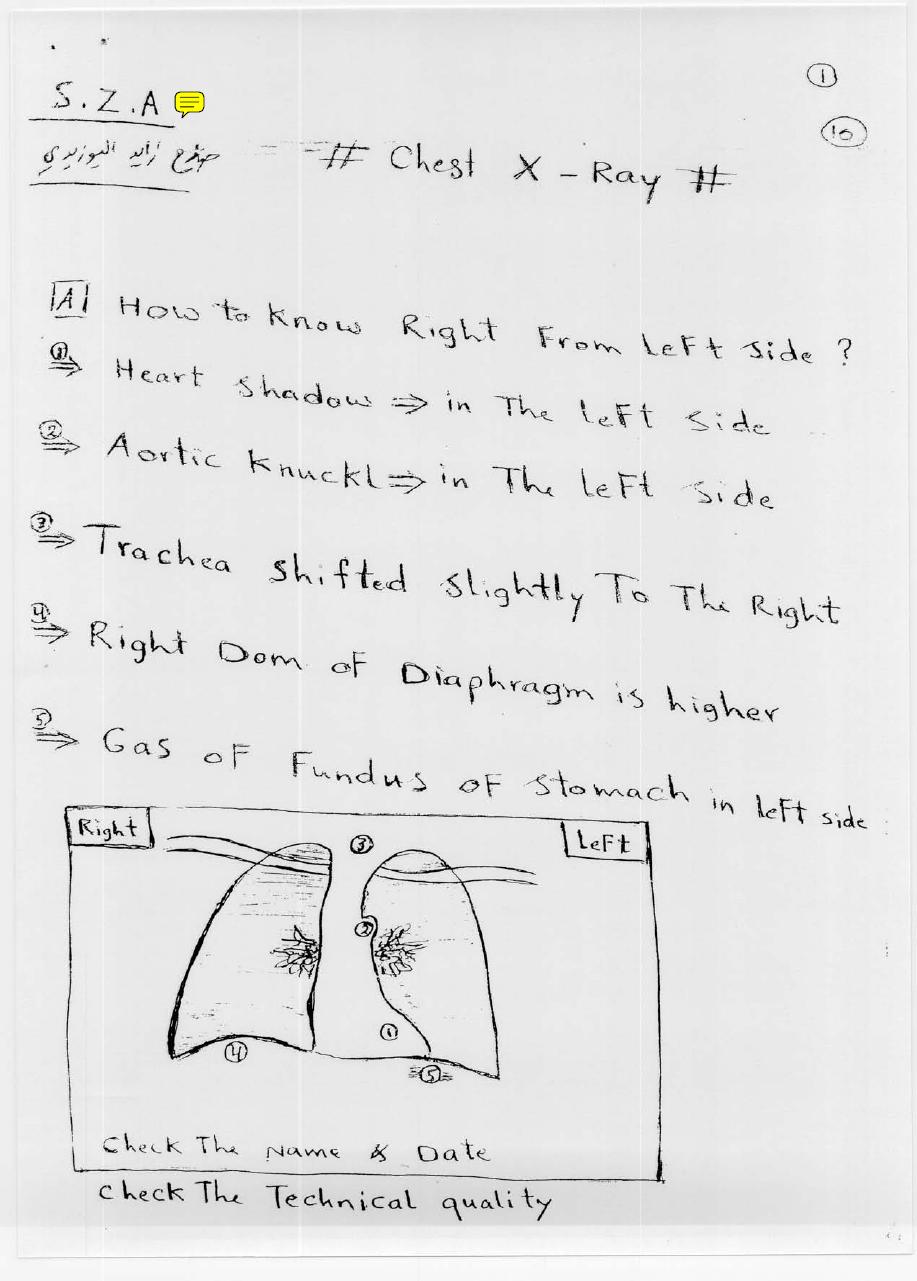 1
S.Z.A
10
زايد
# Chest X-Ray #
A How to know Right From Left side ?
1 ⇒ Heart shadow ⇒ in The left side
2 ⇒ Aortic Knuckl ⇒ in The left side
3 ⇒ Trachea shifted slightly To The Right
4 ⇒ Right Dom of Diaphragm is higher
5 ⇒ Gas of Fundus of stomach in left side
Right
Left
3
2
1
4
5
Check The Name & Date
Check The Technical quality